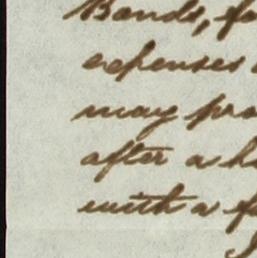 Bonds, fo
expenses
may pro
after a h
with a f